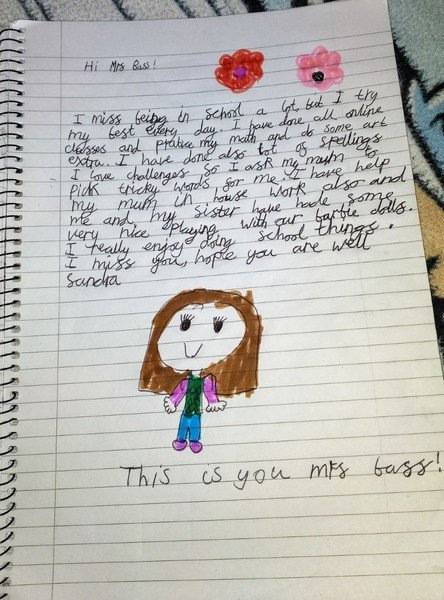 Hi Mrs Bass!
I miss being in school a lot, but I try
my best every day. I have done all online
classes and pratise my math and do some art
extra. I have done also lot of spellings
I love challenges so I ask my mum to
pick tricky words for me. I have help
my mum in house work also and
me and my sister have hade some
very nice playing with our barbie dolls.
I really enjoy doing school things.
I miss you, hope you are well
Sandra
This is you mrs bass!